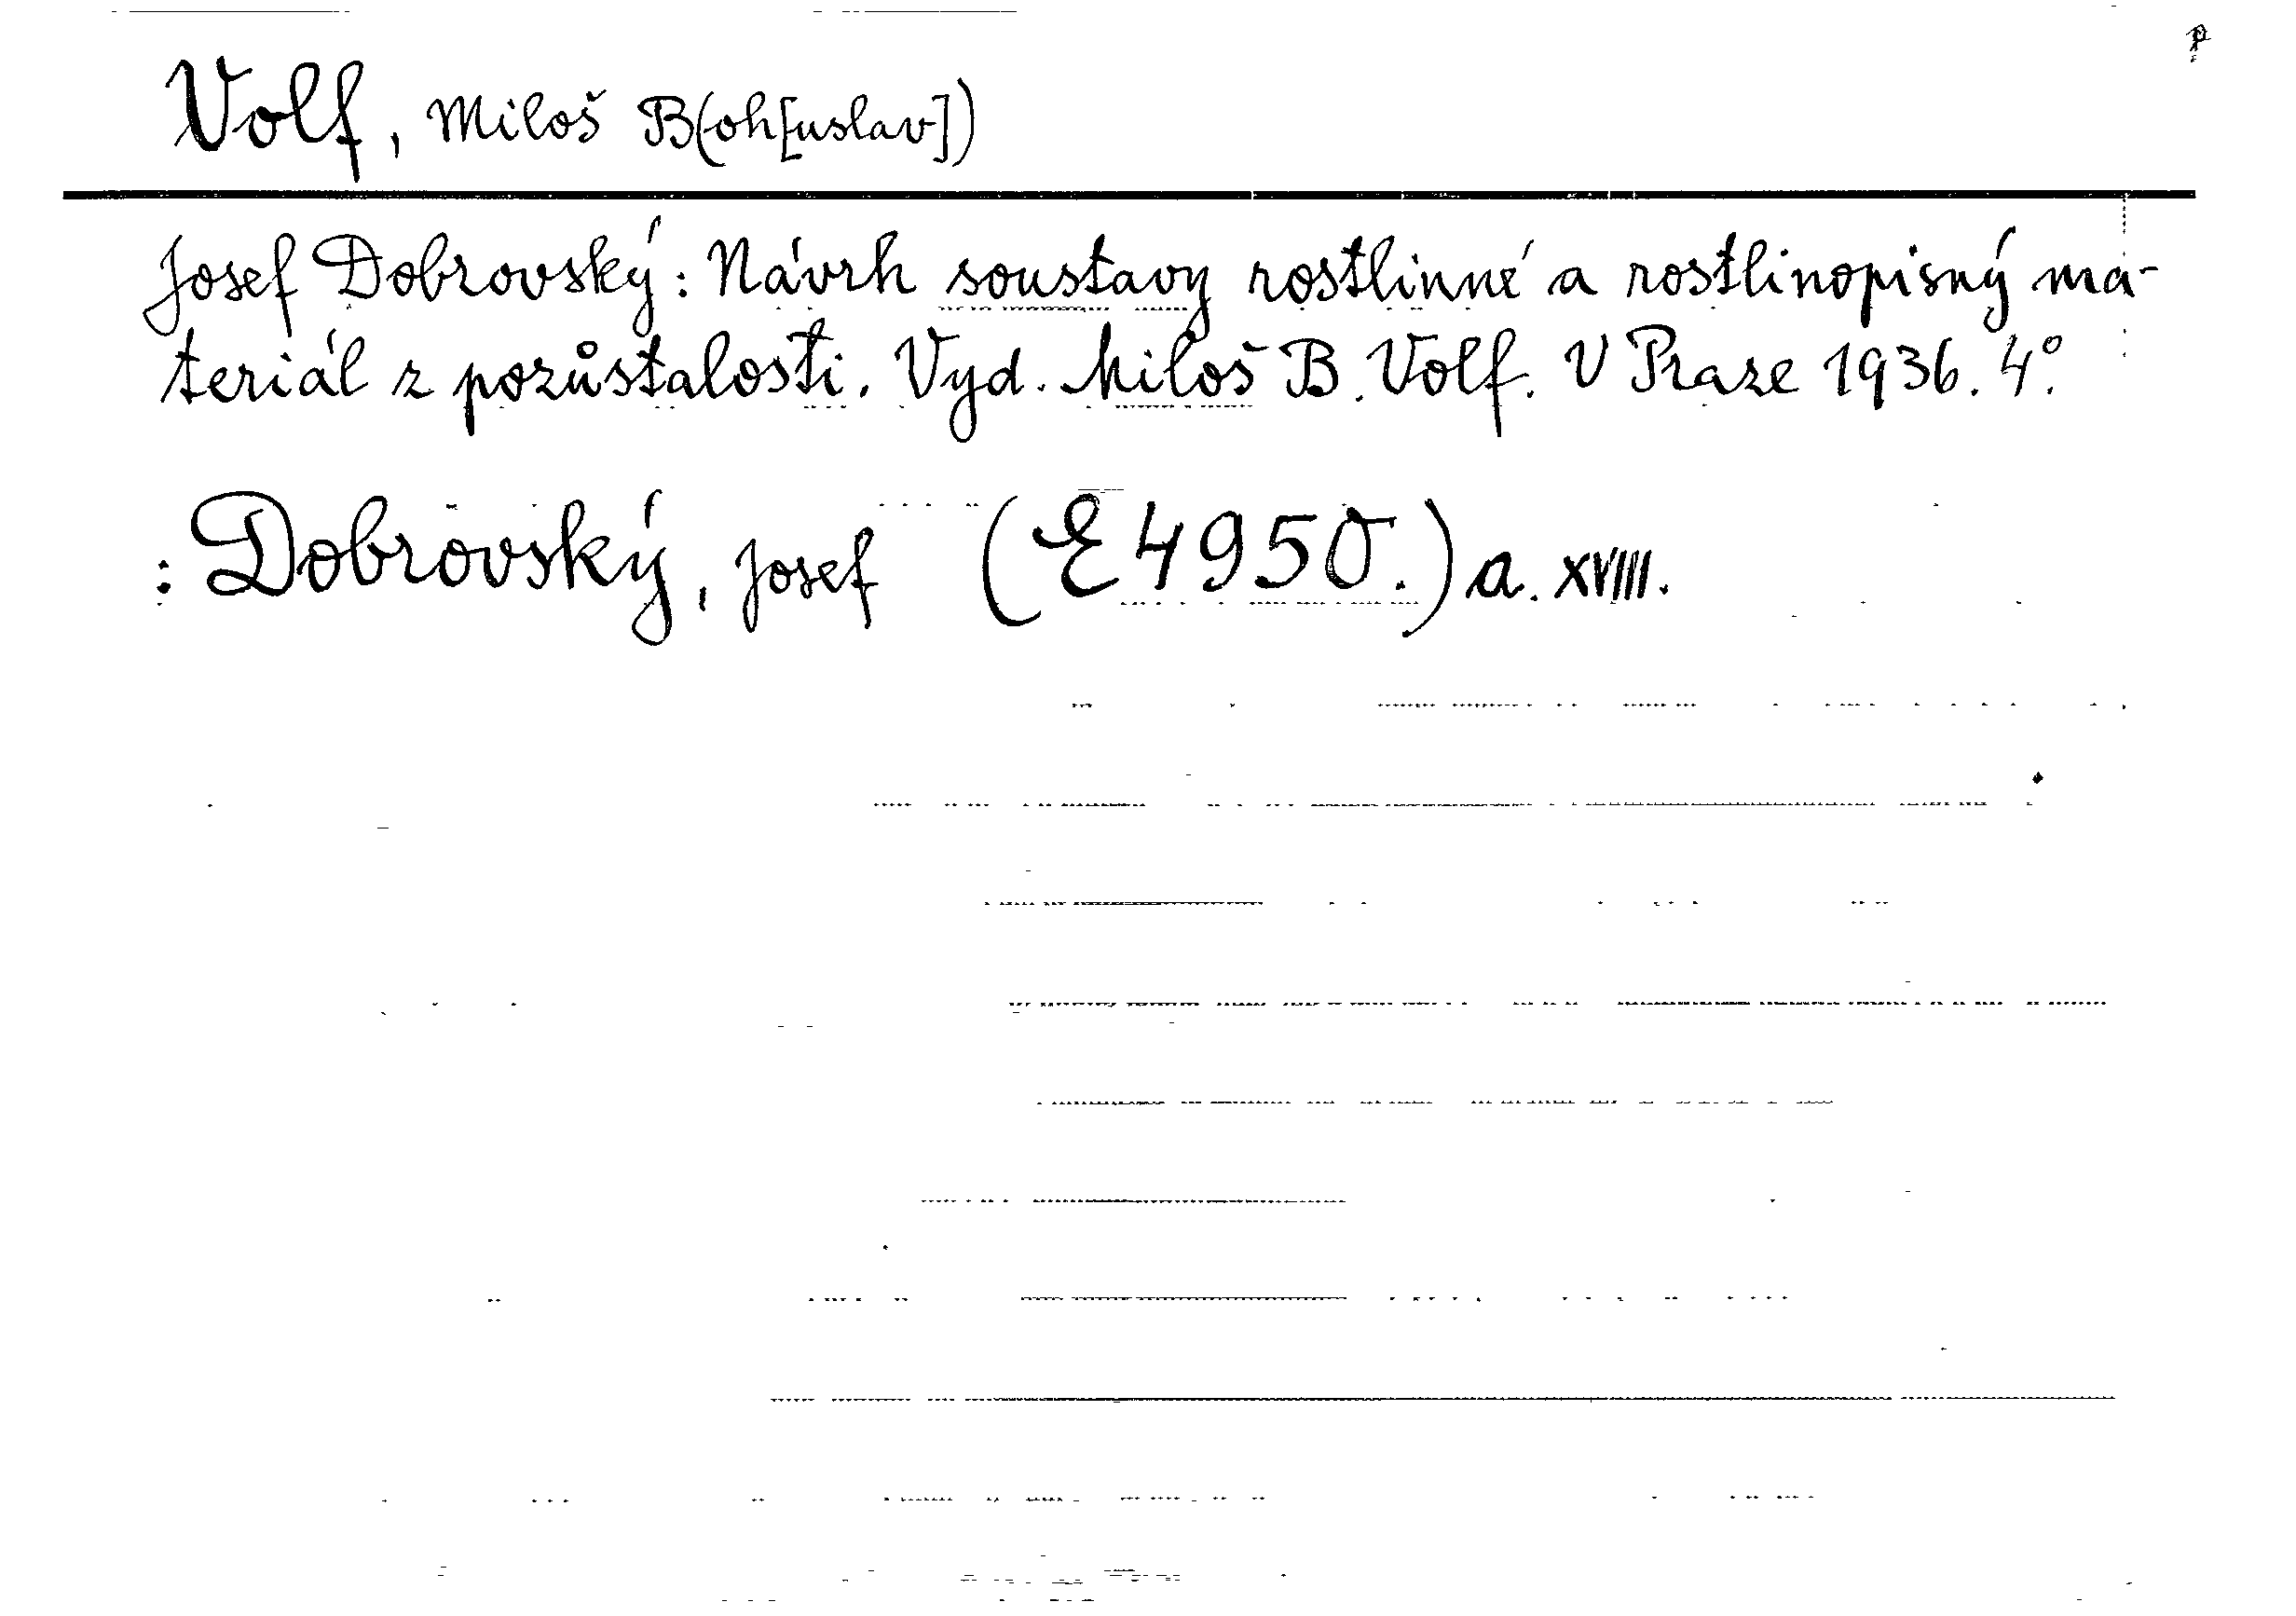 p
Volf, Miloš B(oh[uslav])
Josef Dobrovský: Návrh soustavy rostlinné a rostlinopisný ma-
teriál z pozůstalosti. Vyd. Miloš B. Volf. V Praze 1936. 4°.
: Dobrovský, Josef (E 4950.) a. XVIII.